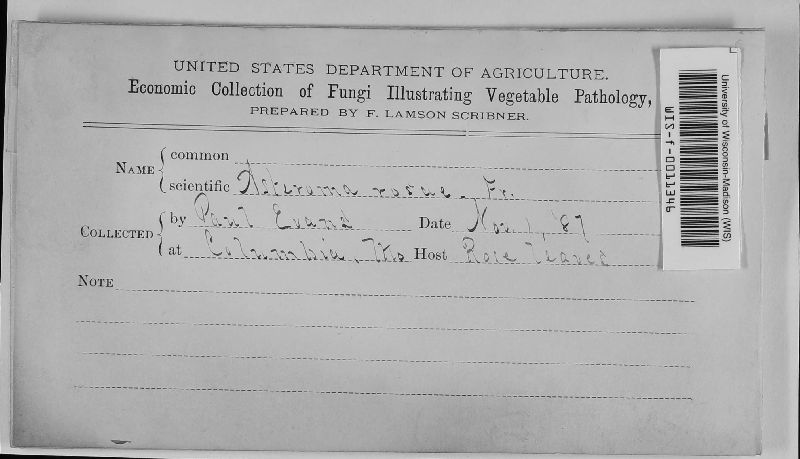 UNITED STATES DEPARTMENT OF AGRICULTURE.
Economic Collection of Fungi Illustrating Vegetable Pathology,
PREPARED BY F. LAMSON SCRIBNER.
NAME common
scientific Asteroma rosae. Fr.
COLLECTED by Paul Evans Date Nov. 1, '87
at Columbia, Mo Host Rose leaves
NOTE
University of Wisconsin-Madison (WIS)
WIS-f-0011346